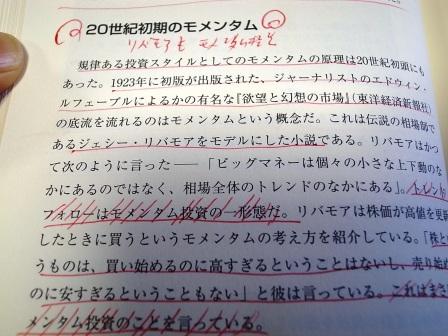 20世紀初期のモメンタム
リバモアも モメンタム投資
規律ある投資スタイルとしてのモメンタムの原理は20世紀初頭にも
あった。1923年に初版が出版された、ジャーナリストのエドウィン・
ルフェーブルによるかの有名な『欲望と幻想の市場』(東洋経済新報社)
の底流を流れるのはモメンタムという概念だ。これは伝説の相場師で
あるジェシー・リバモアをモデルにした小説である。リバモアはかつ
て次のように言った――「ビッグマネーは個々の小さな上下動のな
かにあるのではなく、相場全体のトレンドのなかにある」。トレンド
フォローはモメンタム投資の一形態だ。リバモアは株価が高値を更新
したときに買うというモメンタムの考え方を紹介している。「株と
うものは、買い始めるのに高すぎるということはないし、売り始め
のに安すぎるということもない」と彼は言っている。これはまさ
メンタム投資のことを言っている。